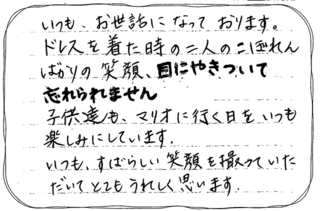 いつも、お世話になっております。
ドレスを着た時の二人のこぼれん
ばかりの笑顔、目にやきついて
忘れられません
子供達も、マリオに行く日をいつも
楽しみにしています。
いつも、すばらしい笑顔を撮っていた
だいてとてもうれしく思います。